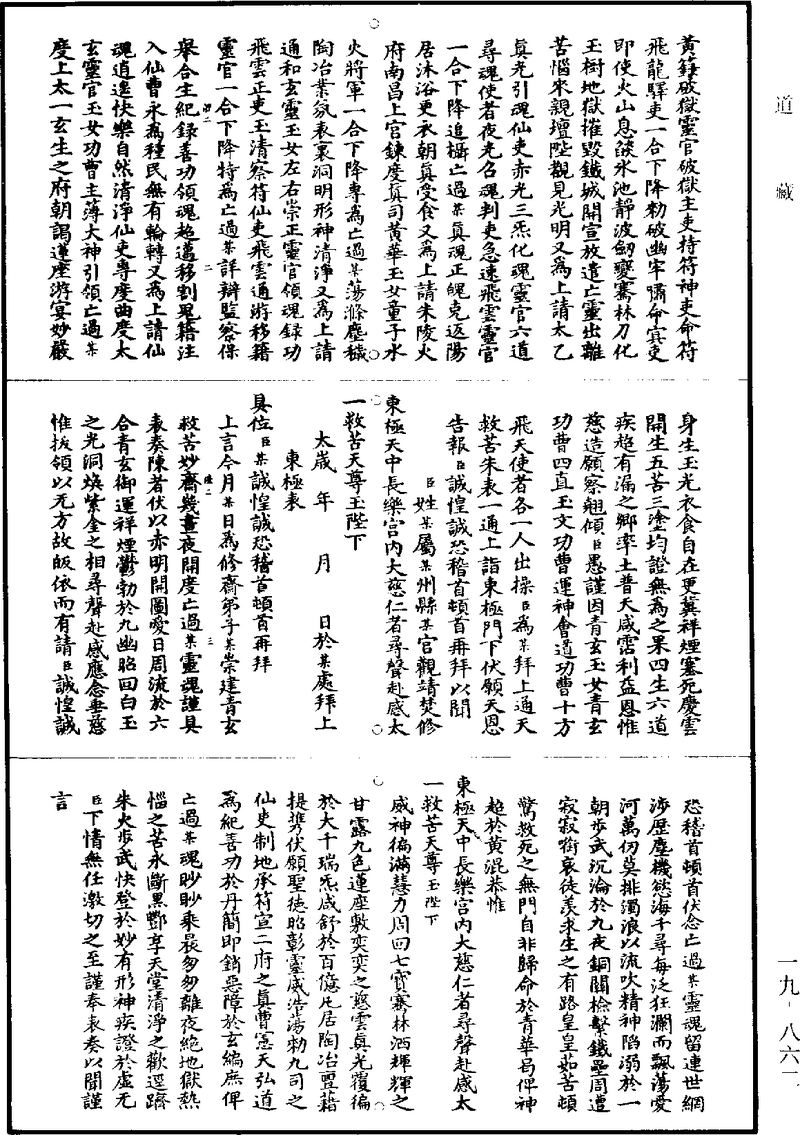 道藏
一九-八六一
黃籙破獄靈官破獄主吏持符神吏命符
飛龍驛吏一合下降勑破幽牢嘯命冥吏
即使火山息燄氷池靜波劒變騫林刀化
玉樹地獄摧毀鐵城開宣放遣亡靈出離
苦惱來親壇陛觀見光明又為上請太乙
真光引魂仙吏赤光三炁化魂靈官六道
尋魂使者夜光召魂判吏急速飛雲靈官
一合下降追攝亡過某真魂正魄克返陽
居沐浴更衣朝真受食又為上請朱陵火
府南昌上宮鍊度真司黃華玉女童子水
火將軍一合下降專為亡過某蕩滌塵穢
陶冶業氛表裏洞明形神清淨又為上請
通和玄靈玉女左右崇正靈官領魂錄功
飛雲正吏玉清察符仙吏飛雲通濟移籍
靈官一合下降特為亡過某詳辯監察保
舉合主紀錄善功領魂超邁移割冤籍注
入仙曹永為種民無有輪轉又為上請仙
魂逍遙快樂自然清淨仙吏尊度曲度太
玄靈官玉女功曹主簿大神引領亡過某
度上太一玄生之府朝謁蓮座游宴妙嚴
身生玉光衣食自在更冀祥煙塞死慶雲
開生五苦三塗均證無為之果四生六道
疾超有漏之鄉率土普天咸霑利益恩惟
慈造願察翹傾臣愚謹因青玄玉女青玄
功曹四直玉文功曹運神會道功曹十方
飛天使者各一人出操臣為某拜上通天
救苦朱表一通上詣東極門下伏願天恩
告報臣誠惶誠恐稽首頓首再拜以聞
臣姓某屬某州縣某宮觀靖焚修
東極天中長樂宮內大慈仁者尋聲赴感太
一救苦天尊玉陛下
太歲年月日於某處拜上
東極表
具位臣某誠惶誠恐稽首頓首再拜
上言今月某日為修齋弟子某崇建青玄
救苦妙齋幾晝夜開度亡過某靈魂謹具
表奏陳者伏以赤明開圖愛日周流於六
合青玄御運祥煙鬱勃於九幽昭回白玉
之光洞煥紫金之相尋聲赴感應念垂慈
惟拔領以无方故皈依而有請臣誠惶誠
恐稽首頓首伏念亡過某靈魂留連世網
涉歷塵機慾海千尋每泛狂瀾而飄蕩愛
河萬仞莫排濁浪以流吹精神陷溺於一
朝步武沉淪於九夜銅關檢繫鐵壘周遭
寂寂銜哀徒羨求生之有路皇皇茹苦頓
驚救死之無門自非歸命於青華曷俾神
超於黃混恭惟
東極天中長樂宮內大慈仁者尋聲赴感太
一救苦天尊玉陛下
威神徧滿慧力周回七寶騫林洒輝輝之
甘露九色蓮座敷奕奕之慈雲真光復徧
於大千瑞炁咸舒於百億凡居陶冶畢藉
提携伏願聖德昭彰靈威浩蕩勑九司之
仙吏制地承符宣二府之真曹憲天弘道
為紀善功於丹簡即銷惡障於玄編庶俾
亡過某魂眇眇乘晨匆匆離夜絕地獄熱
惱之苦永斷黑酆享天堂清淨之歡逕躋
朱火步武快登於妙有形神疾證於虛无
臣下情無任激切之至謹奉表奏以聞謹
言